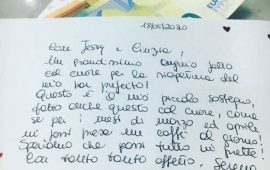 18/05/2020
Care Jessy e Cinzia,
Un grandissimo augurio fatto
col cuore per la riapertura del
mio bar preferito!
Questo è il mio piccolo sostegno,
fatto anche questo col cuore, come
se per i mesi di marzo ed aprile
mi fossi presa un caffè al giorno!
Speriamo che passi tutto in fretta!
Con tanto tanto affetto, Serena